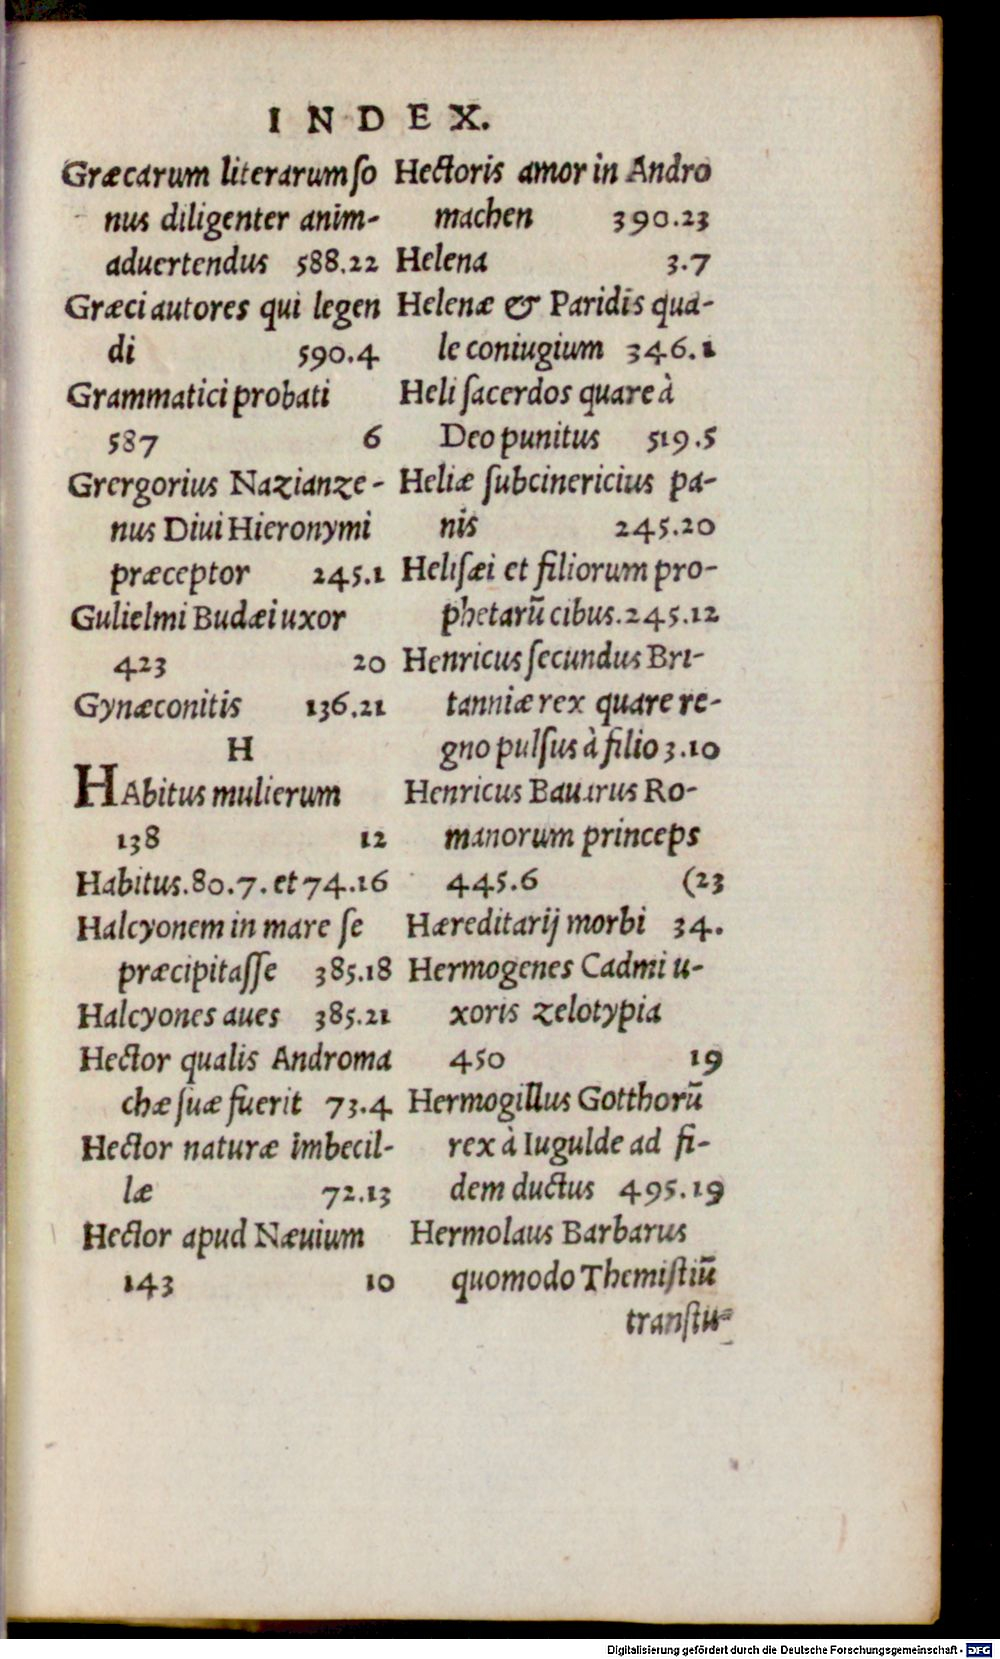 INDEX.
Græcarum literarum ſo
nus diligenter anim-
aduertendus 588.22
Græci autores qui legen
di 590.4
Grammatici probati
587 6
Grergorius Nazianze-
nus Diui Hieronymi
præceptor 245.1
Gulielmi Budæi uxor
423 20
Gynæconitis 136.21
H
HAbitus mulierum
138 12
Habitus.80.7. et 74.16
Halcyonem in mare ſe
præcipitaſſe 385.18
Halcyones aues 385.21
Hector qualis Androma
chæ ſuæ fuerit 73.4
Hector naturæ imbecil-
læ 72.13
Hector apud Næuium
143 10
Hectoris amor in Andro
machen 390.23
Helena 3.7
Helenæ & Paridis qua-
le coniugium 346.1
Heli ſacerdos quare à
Deo punitus 519.5
Heliæ ſubcinericius pa-
nis 245.20
Heliſæi et filiorum pro-
phetarũ cibus.245.12
Henricus ſecundus Bri-
tanniæ rex quare re-
gno pulſus à filio 3.10
Henricus Bauarus Ro-
manorum princeps
445.6 (23
Hæreditarij morbi 34.
Hermogenes Cadmi u-
xoris zelotypia
450 19
Hermogillus Gotthorũ
rex à Iugulde ad fi-
dem ductus 495.19
Hermolaus Barbarus
quomodo Themiſtiũ
tranſtu-
Digitalisierung gefördert durch die Deutsche Forschungsgemeinschaft - DFG